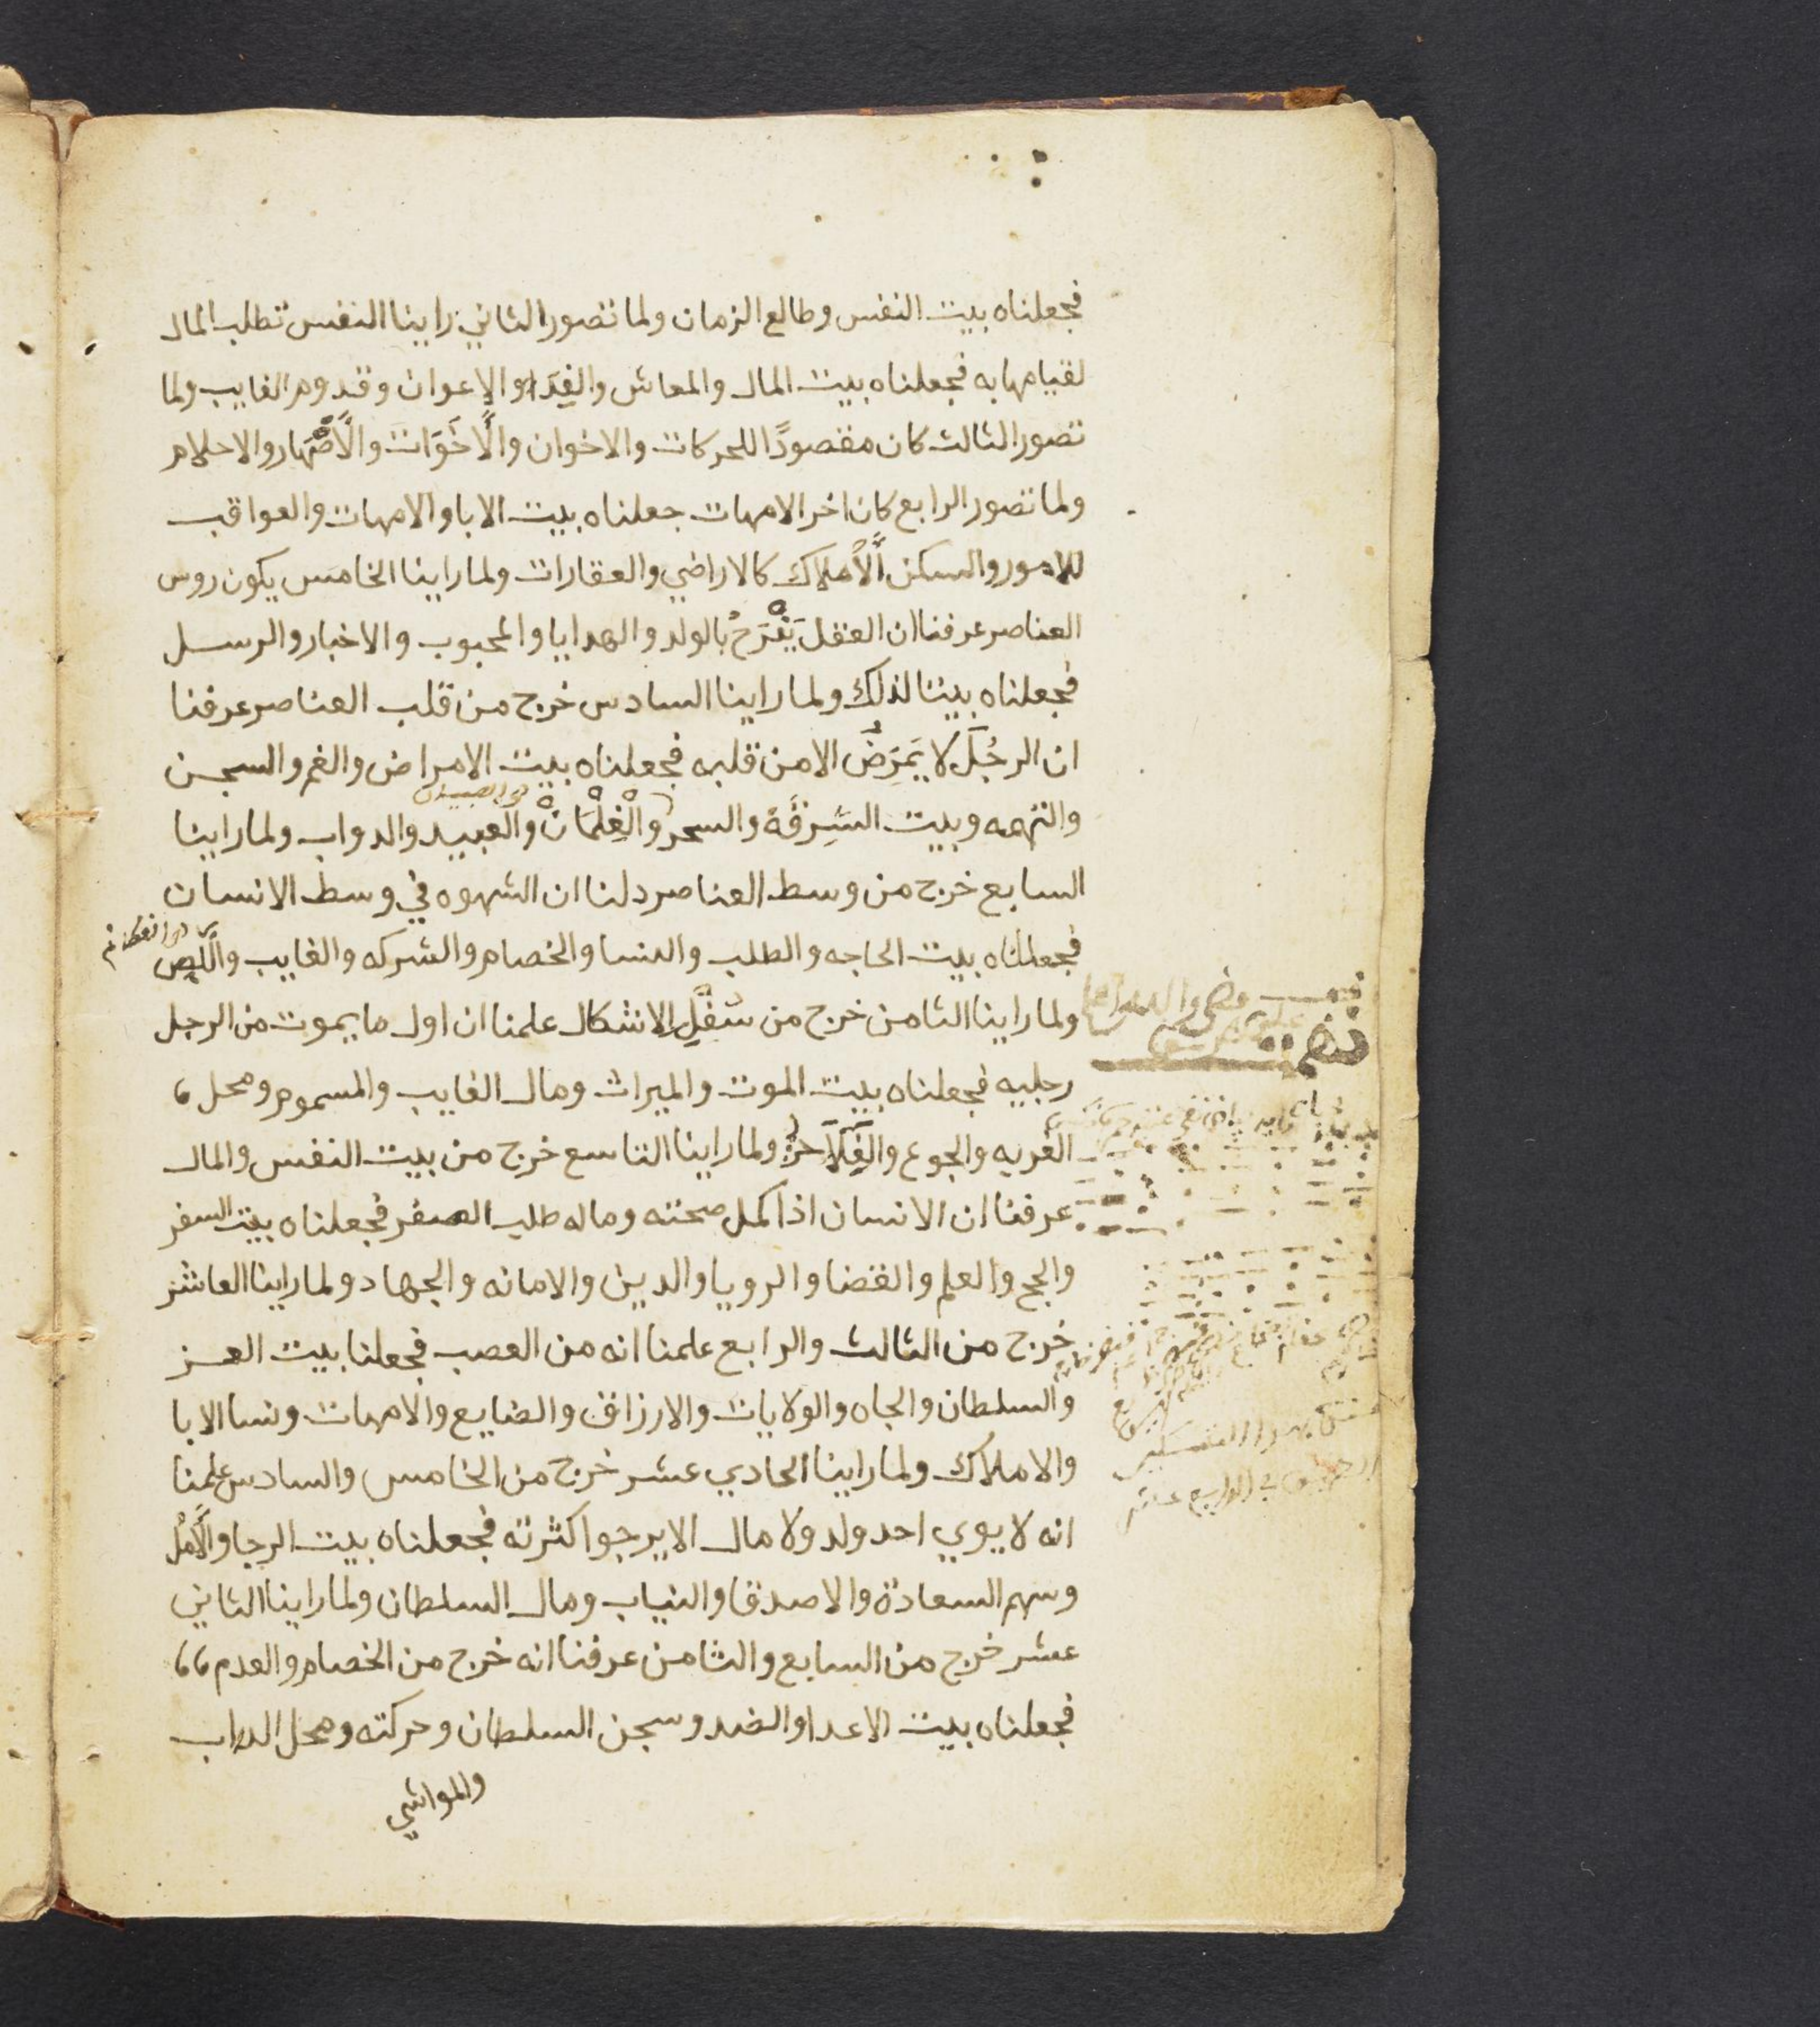 فجعلناه بيت النفس وطالع الزمان ولما تصور الثاني راينا النفس تطلب المال
لقيامها به فجعلناه بيت المال والمعاش والغِدَا والاعوان وقدوم الغايب ولما
تصور الثالث كان مقصودًا للحركات والاخوان والأَخَوَات والأَصْهَار والاحلام
ولما تصور الرابع كان اخر الامهات جعلناه بيت الابا والامهات والعواقب
للامور والسكن الأَملاك كالاراضي والعقارات ولما راينا الخامس يكون روس
العناصر عرفنا ان العقل يَفْرَحُ بالولد والهدايا والمحبوب والاخبار والرسل
فجعلناه بيتا لذلك ولما راينا السادس خرج من قلب العناصر عرفنا
ان الرجُلَ لا يَمرَضُ الا من قلبه فجعلناه بيت الامراض والغم والسجن
والتهمه وبيت السَرِقَة والسحر والْغِلْمَانْ والعبيد والدواب ولما راينا
السابع خرج من وسط العناصر دلنا ان الشهوه في وسط الانسان
فجعلناه بيت الحاجه والطلب والنسا والخصام والشركه والغايب واللِّص
ولما راينا الثامن خرج من سُفلِ الاشكال علمنا ان اول ما يموت من الرجل
رجليه فجعلناه بيت الموت والميراث ومال الغايب والمسموم ومحل،
الغربه والجوع والفَلَاحَة ولما راينا التاسع خرج من بيت النفس والمال
عرفنا ان الانسان اذا كمل صحته وماله طلب السفر فجعلناه بيت السفر
والحج والعلم والقضا والرويا والدين والامانه والجهاد ولما راينا العاشر
خرج من الثالث والرابع علمنا انه من العصب فجعلنا بيت العز
والسلطان والجاه والولايات والارزاق والضايع والامهات ونسا الابا
والاملاك ولما راينا الحادي عشر خرج من الخامس والسادس علمنا
انه لا يوي احد ولد ولا مال الا يرجوا كثرته فجعلناه بيت الرجا والأمل
وسهم السعادة والاصدقا والثياب ومال السلطان ولما راينا الثاني
عشر خرج من السابع والثامن عرفنا انه خرج من الخصام والعدم،،
فجعلناه بيت الاعدا والضد وسجن السلطان وحركته ومحل الدواب
والمواشي